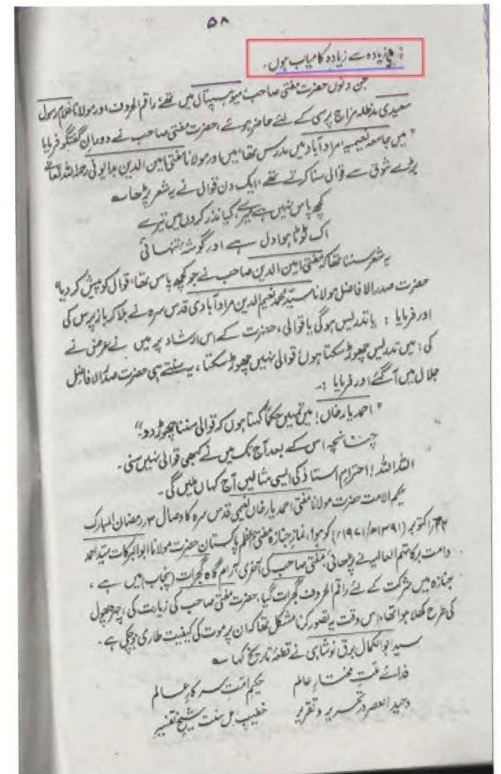 ۵۸
زیادہ سے زیادہ کامیاب ہوں۔
جن دنوں حضرت مفتی صاحب میو ہسپتال میں تھے، راقم الحروف اور مولانا غلام رسول
سعیدی مدظلہ مزاج پرسی کے لئے حاضر ہوئے، حضرت مفتی صاحب نے دوران گفتگو فرمایا
"میں جامعہ نعیمیہ مراد آباد میں مدرس تھا، میں اور مولانا مفتی امین الدین بدایونی رحمہ اللہ تعالےٰ
بڑے شوق سے قوالی سنا کرتے تھے، ایک دن قوالی نے یہ شعر پڑھا ؎
کچھ پاس نہیں ہے میرے، کیا نذر کروں میں تیرے
اک ٹوٹا ہوا دل ہے اور گوشۂ تنہائی
یہ شعر سننا تھا کہ مفتی امین الدین صاحب نے جو کچھ پاس تھا، قوال کو پیش کر دیا"
حضرت صدر الافاضل مولانا سید محمد نعیم الدین مراد آبادی قدس سرہ نے بلا کر باز پرس کی
اور فرمایا : یا تدریس ہوگی یا قوالی، حضرت کے اس ارشاد پر میں نے عرض نے
کی: میں تدریس چھوڑ سکتا ہوں! قوالی نہیں چھوڑ سکتا، یہ سنتے ہی حضرت صدر الافاضل
جلال میں آگئے اور فرمایا :۔
"احمد یار خاں! میں تمہیں حکماً کہتا ہوں کہ قوالی سننا چھوڑ دو۔"
چنانچہ اس کے بعد آج تک میں نے کبھی قوالی نہیں سنی۔
اللہ اللہ! احترام استاذ کی ایسی مثالیں آج کہاں ملیں گی۔
حکیم الامت حضرت مولانا مفتی احمد یار خاں نعیمی قدس سرہ کا وصال ۳ رمضان المبارک
۲۴ اکتوبر (۱۳۹۱ھ/۱۹۷۱ء) کو ہوا، نماز جنازہ مفتی اعظم پاکستان حضرت مولانا ابو البرکات سید احمد
دامت برکاتہم العالیہ نے پڑھائی، مفتی صاحب کی آخری آرام گاہ گجرات (پنجاب) میں ہے،
جنازہ میں شرکت کے لئے راقم الحروف گجرات گیا، حضرت مفتی صاحب کی زیارت کی، چہرہ پھول
کی طرح کھلا ہوا تھا، اس وقت یہ تصور کرنا مشکل تھا کہ ان پر موت کی کیفیت طاری ہو چکی ہے۔
سید ابو الکمال برق نوشاہی نے قطعہ تاریخ کہا ؎
فدائے ملت مختار عالم حکیم امت سرکار عالم
وحید العصر در تحریر و تقریر خطیب اہل سنت شیخ تفسیر